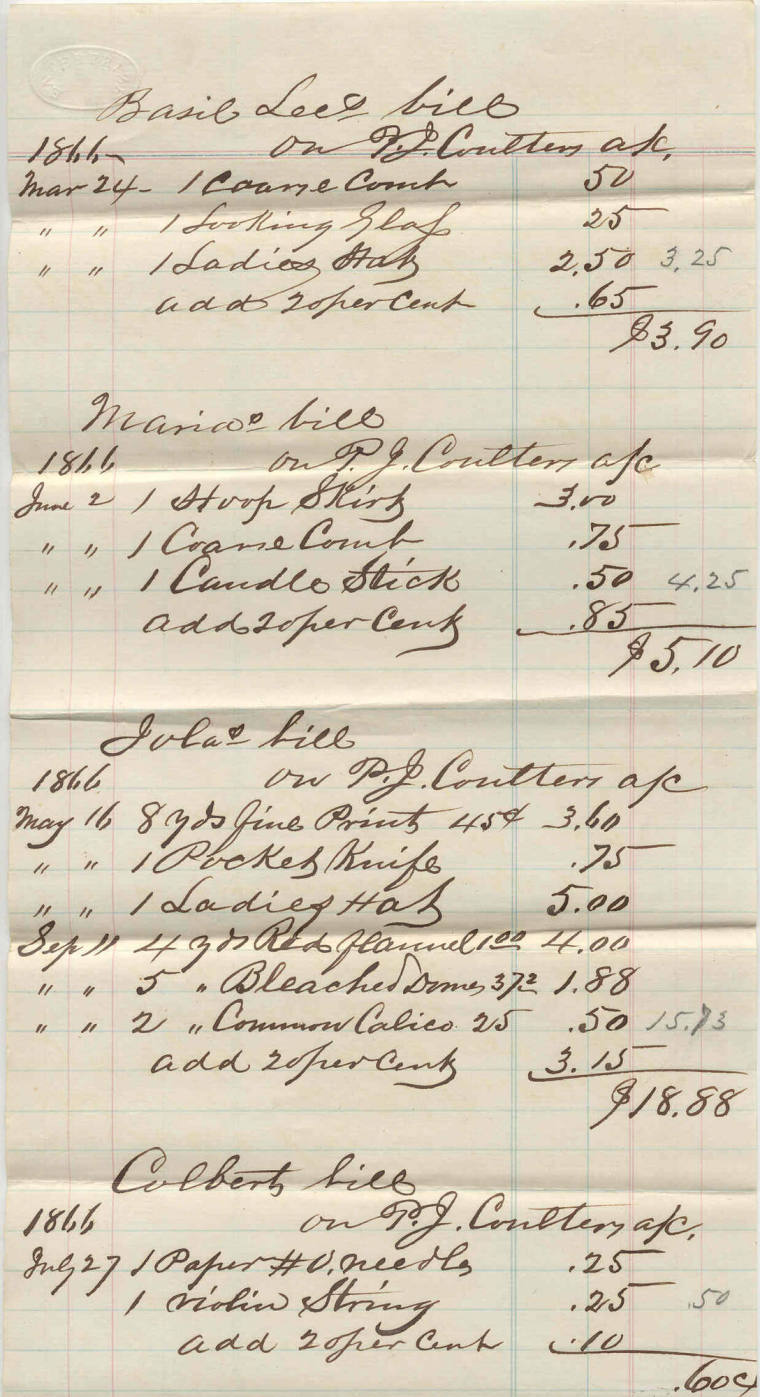 Basil Lees bill
1866 on P.J. Coulters a/c.
Mar 24 - 1 Coarse Comb 50
" " 1 Looking Glass 25
" " 1 Ladies Hat 2,50 3,25
add 20 per cent .65
$3.90
Marias bill
1866 on P.J. Coulters a/c
June 2 1 Hoop Skirt 3.00
" " 1 Coarse Comb .75
" " 1 Candle Stick .50 4.25
add 20 per Cent .85
$5.10
bill
1866 on P.J. Coulters a/c
May 16 8 yds fine Print 45¢ 3.60
" " 1 Pocket Knife .75
" " 1 Ladies Hat 5.00
Sep 11 4 yds Red flannel 1 00 4.00
" " 5 " Bleached Domes 37 2 1.88
" " 2 " Common Calico 25 .50 15.73
add 20 per Cent 3.15
$18.88
Colberts bill
1866 on P.J. Coulters a/c.
July 27 1 Paper needles .25
1 violin String .25 .50
add 20 per Cent .10
.60¢